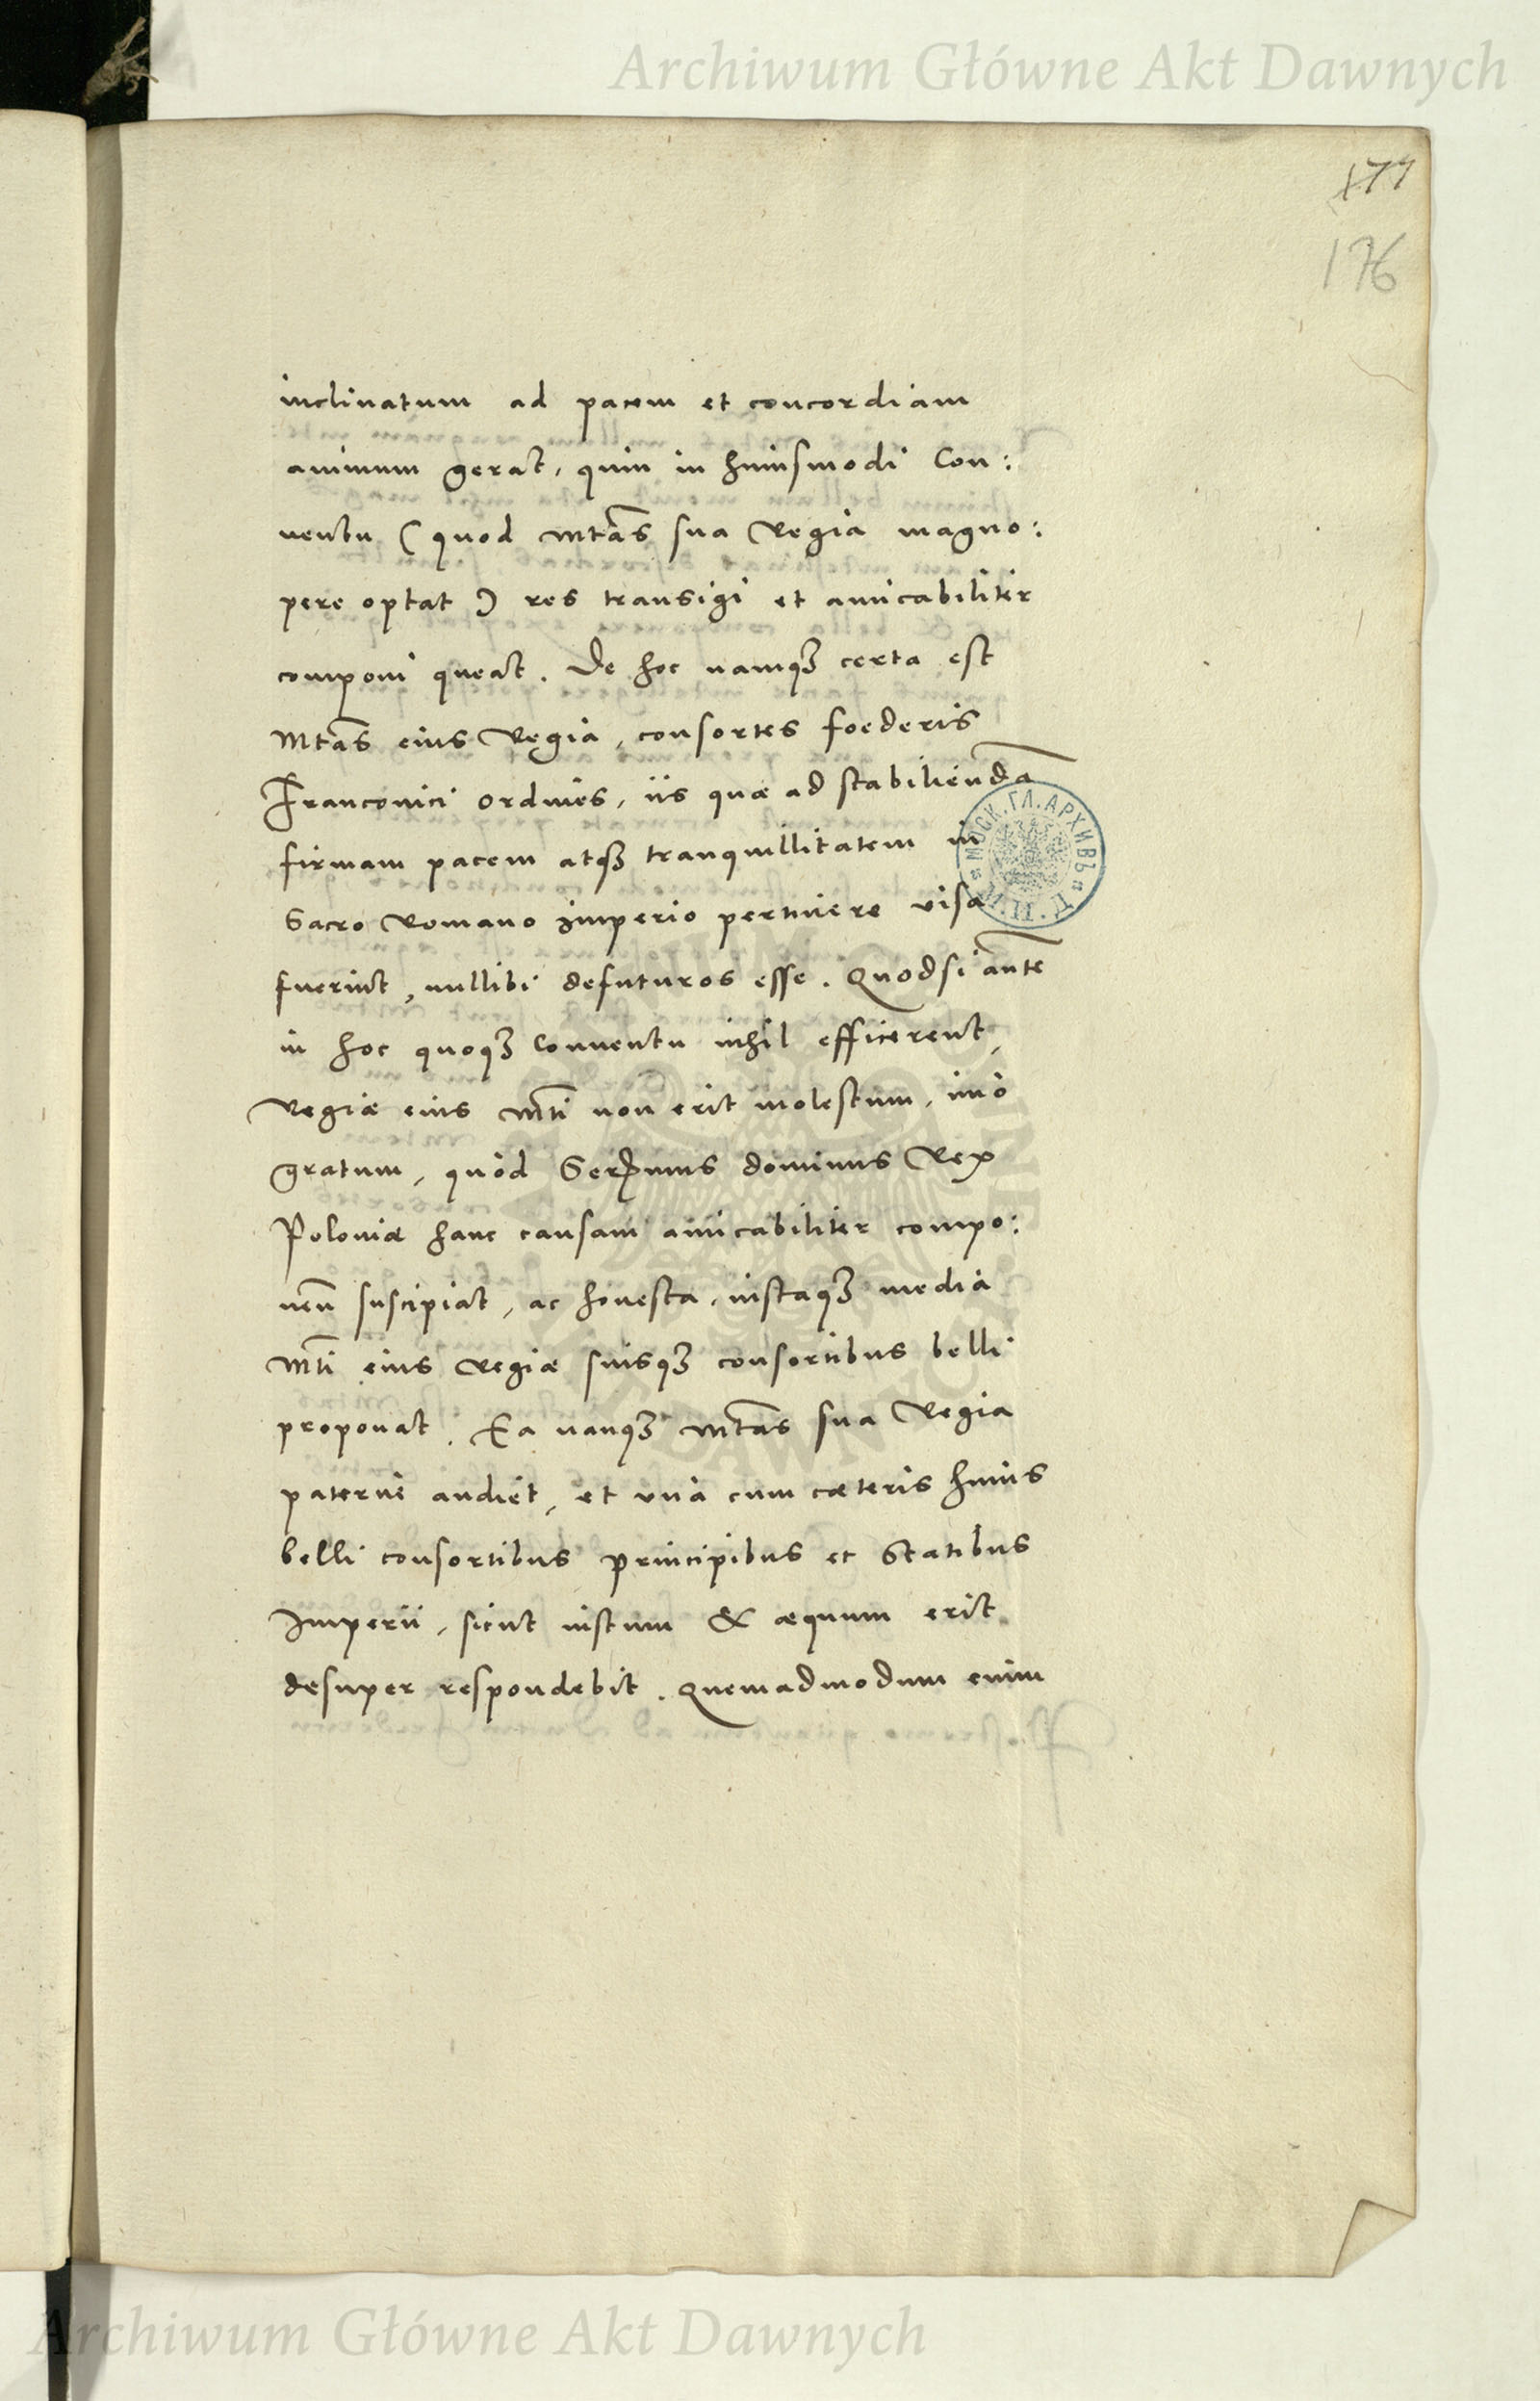 Archiwum Główne Akt Dawnych
177
176
inclinatum ad pacem et concordiam
animum gerat, quin in huiusmodi Con:
uentu (quod Mtas sua Regia magno:
pere optat) res transigi et amicabiliter
componi queat. De hoc namq3 certa est
Mtas eius Regia, consortes foederis
Franconici ordines, iis quæ ad stabiliendā
firmam pacem atq3 tranquillitatem in
Sacro Romano Imperio pertinere visa
fuerint, nullibi defuturos esse. Quodsi aute
in hoc quoq3 Conuentu nihil efficerent,
Regiæ eius Mti non erit molestum, imò
gratum, quòd Sermus dominus Rex
Poloniæ hanc causam amicabiliter compo:
nen suscipiat, ac honesta, iustaq3 media
Mti eius Regiæ suisq3 consortibus belli
proponat. Ea nanq3 Mtas sua Regia
paterne audiet, et vnà cum cæteris huius
belli consortibus principibus et Statibus
Imperii, sicut iustum & æquum erit
desuper respondebit. Quemadmodum enim
МОСК. ГЛ. АРХИВЪ
Archiwum Główne Akt Dawnych